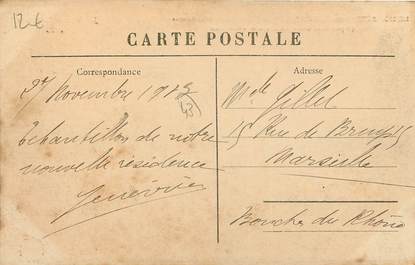 12€
CARTE POSTALE
Correspondance
Novembre 1913
Echantillon de notre
nouvelle résidence
Geneviève
Adresse
Mlle Gillet
15 Rue de Bruys 15
Marseille
Bouches du Rhône